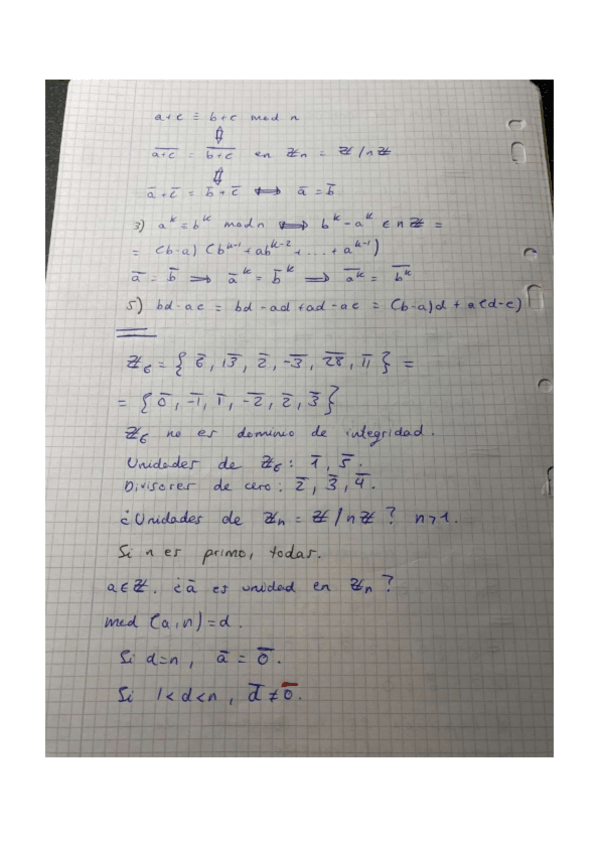 a+c ≡ b+c mod n
⇕
a̅+̅c̅ = b̅+̅c̅ en ℤn = ℤ/nℤ
⇕
a̅ + c̅ = b̅ + c̅ ⟺ a̅ = b̅
3) a^k = b^k mod n ⟺ b^k - a^k ∈ nℤ =
= (b-a) (b^{k-1} + ab^{k-2} + ... + a^{k-1})
a̅ = b̅ ⟹ a̅^k = b̅^k ⟹ \overline{a^k} = \overline{b^k}
5) bd-ac = bd-ad+ad-ac = (b-a)d + a(d-c)
ℤ6 = { 6̅, 1̅3̅, 2̅, -̅3̅, 2̅8̅, 1̅1̅ } =
= { 0̅, -̅1̅, 1̅, -̅2̅, 2̅, 3̅ }
ℤ6 no es dominio de integridad.
Unidades de ℤ6: 1̅, 5̅.
Divisores de cero: 2̅, 3̅, 4̅.
¿Unidades de ℤn = ℤ/nℤ? n>1.
Si n es primo, todas.
a∈ℤ. ¿a̅ es unidad en ℤn?
mcd (a,n)=d.
Si d=n, a̅ = 0̅.
Si 1<d<n, d̅ ≠ 0̅.